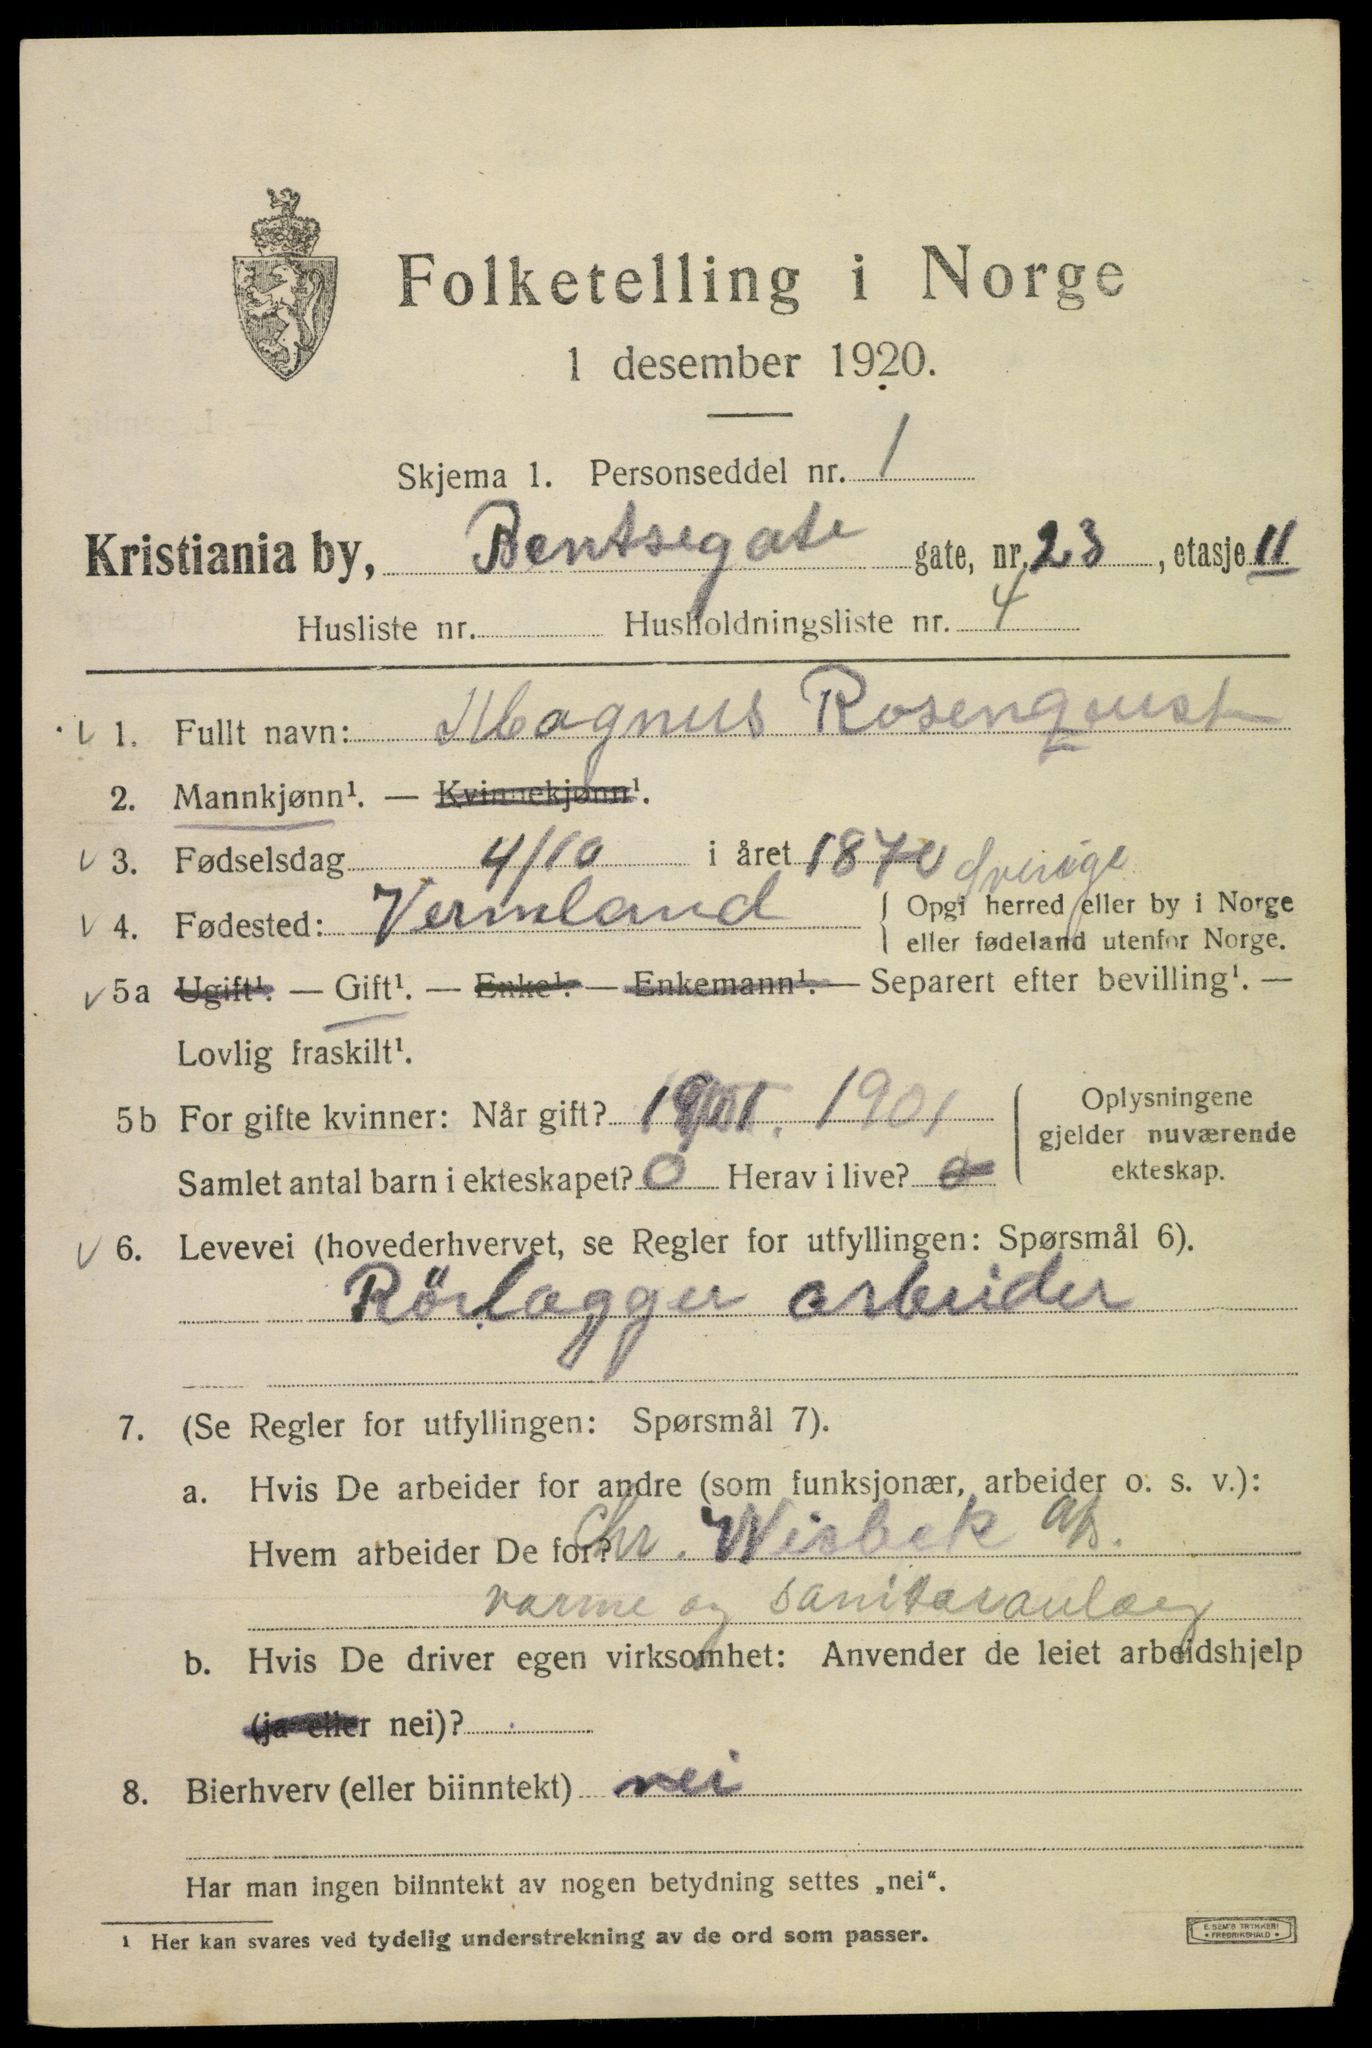 Folketelling i Norge
1 desember 1920.
Skjema 1. Personseddel nr. 1
Kristiania by, Bentsegate gate, nr. 23, etasje II
Husliste nr. Husholdningsliste nr. 4
1. Fullt navn: Magnus Rosenquist
2. Mannkjønn¹. — Kvinnekjønn¹.
3. Fødselsdag 4/10 i året 1870 Sverige
4. Fødested: Vermland { Opgi herred eller by i Norge
eller fødeland utenfor Norge.
5a Ugift¹. — Gift¹. — Enke¹. — Enkemann¹. — Separert efter bevilling¹. —
Lovlig fraskilt¹.
5b For gifte kvinner: Når gift? 1901. 1901
Samlet antal barn i ekteskapet? 0 Herav i live? 0
Oplysningene
gjelder nuværende
ekteskap.
6. Levevei (hovederhvervet, se Regler for utfyllingen: Spørsmål 6).
Rörlagger arbeider
7. (Se Regler for utfyllingen: Spørsmål 7).
a. Hvis De arbeider for andre (som funksjonær, arbeider o. s. v.):
Hvem arbeider De for? Chr. Wisbek A/s.
varme og sanitæranlæg
b. Hvis De driver egen virksomhet: Anvender de leiet arbeidshjelp
(ja eller nei)?
8. Bierhverv (eller biinntekt) nei
Har man ingen biinntekt av nogen betydning settes „nei“.
¹ Her kan svares ved tydelig understrekning av de ord som passer.
E. SEM'S TRYKKERI
* FREDRIKSHALD *